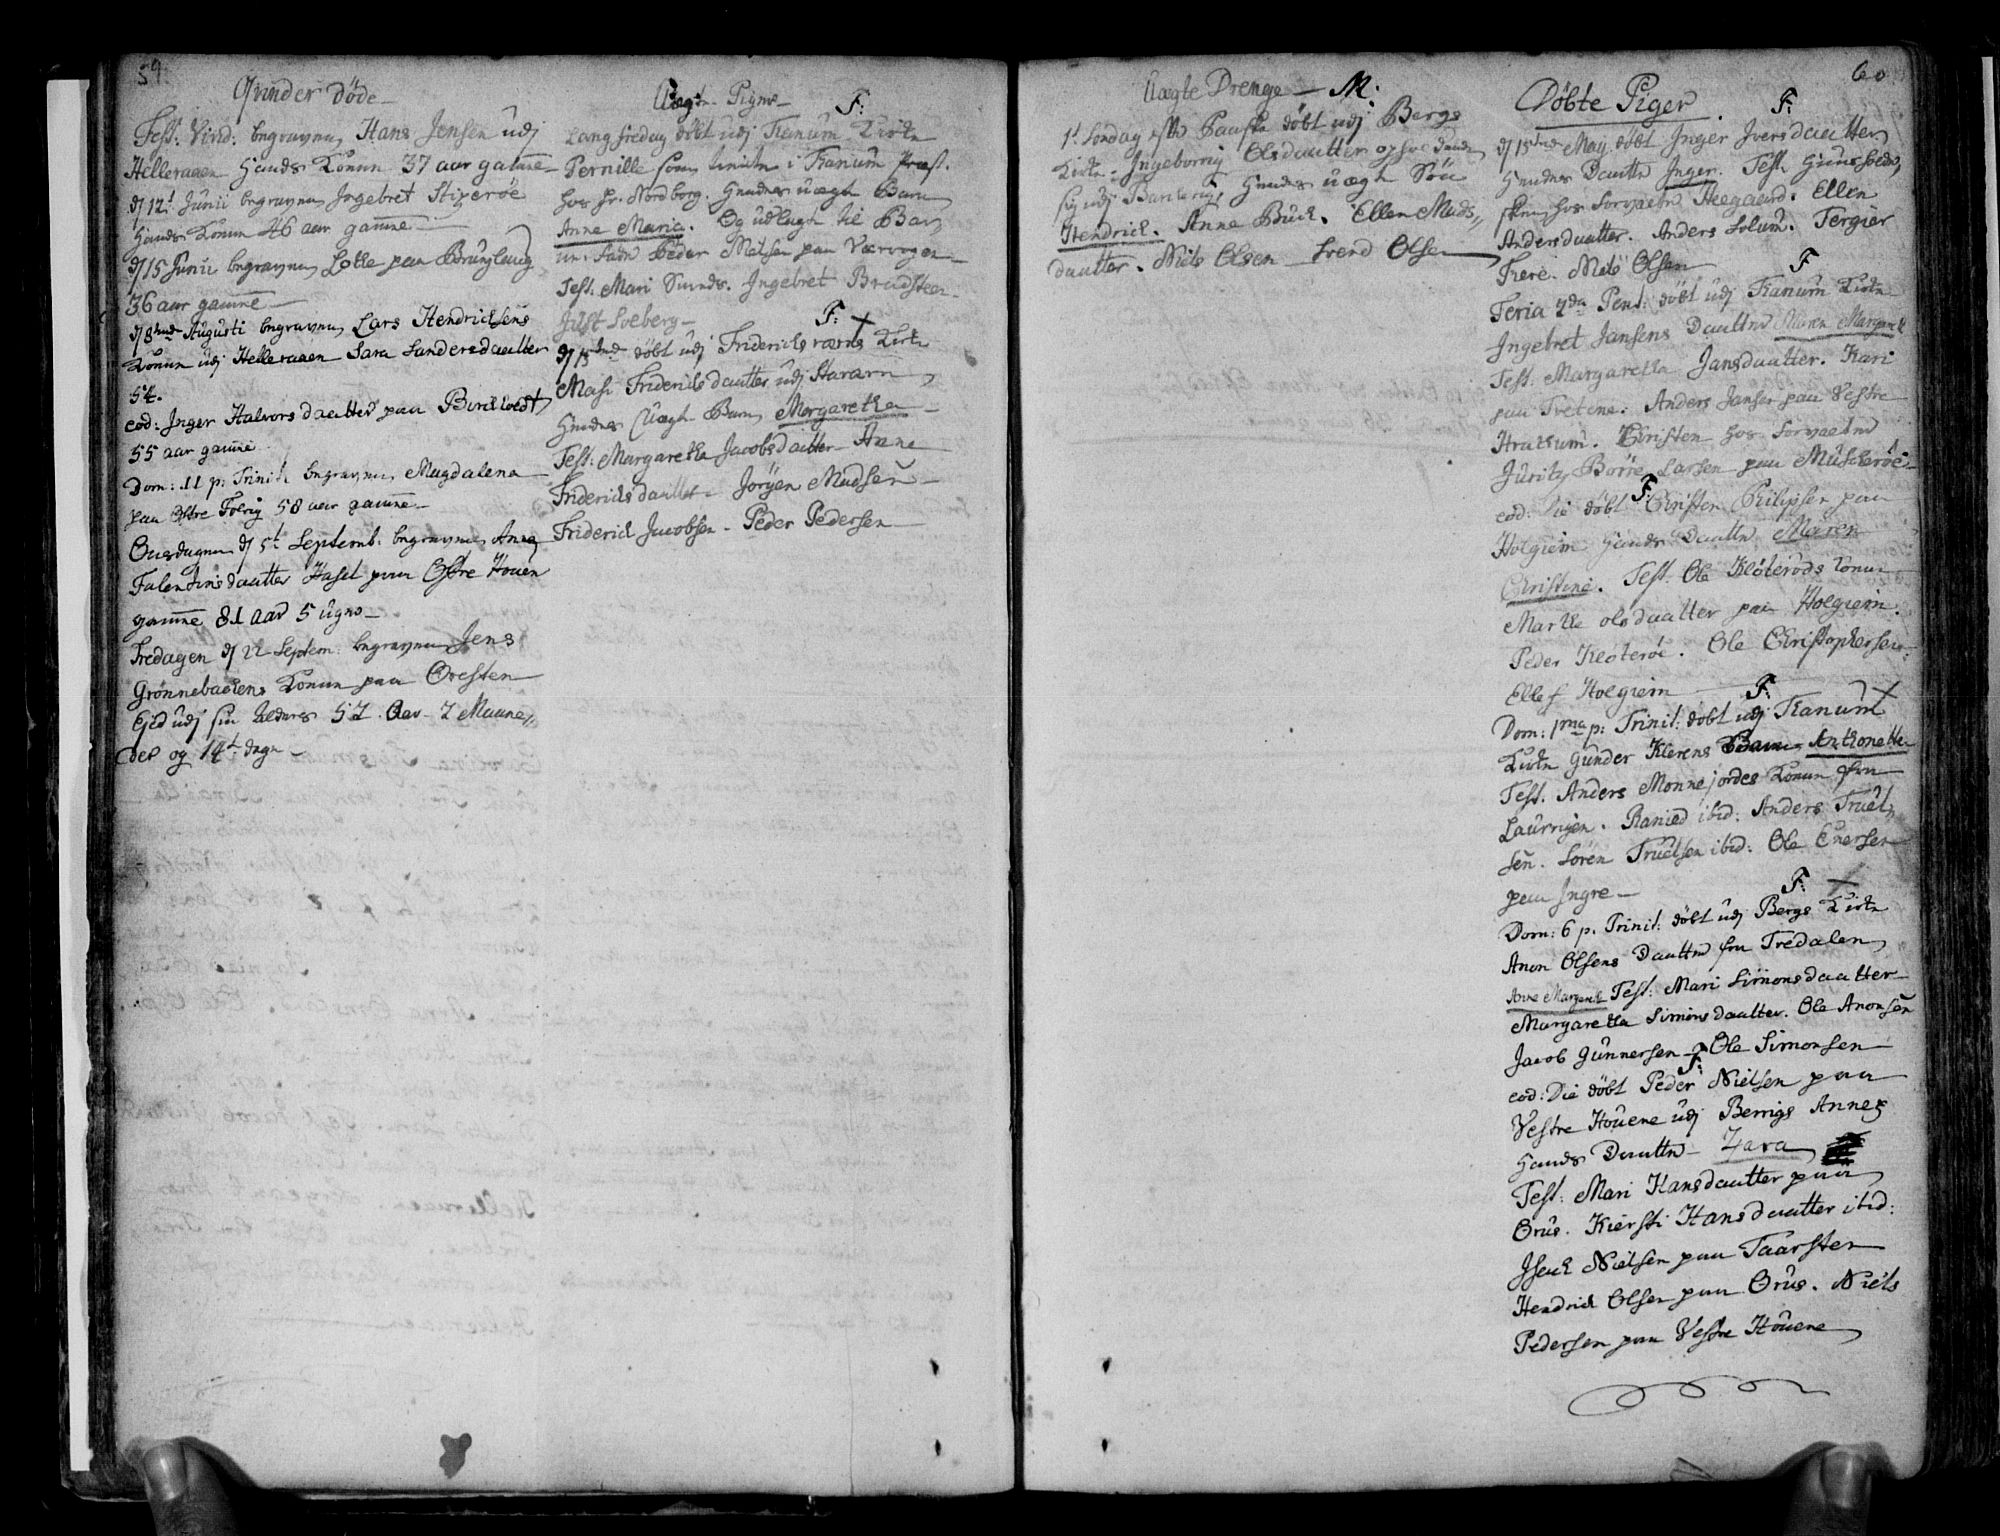 59.
Qvinder Döde
Fest: Visit: begraven Hans Jensen udj
Helleraaen Hands Konne 37 aar gamme
d 12t Junii begraven Ingebret Stiperöe
Hands Konne 46 aar gamme
d 15 Junii begraven Lotte paa Brunglaug
36 aar gamme
d 8de Augusti begraven Lars Hendrichsens
Konne udj Helleraaen Sara Sandersdaatter
54.
eod: Inger Halvorsdaatter paa Birchvedt
55 aar gamme
Dom: 11 p: Trinit: begraven Magdalena
paa Östre Folrig 58 aar gamme
Onsdagen d 5t Septemb: begraven Anne
Falentinsdaatter Hasel paa Östre Houen
gamme 81 aar 5 uger
Fredagen d 22 Septem: begraven Jens
Grönnebackens Konne paa Oresten
Ejed udj sin Alders 52 Aar 2 Maane
der og 14t dage
Uægte Piger F:
Langfredag döbt udj Tanum Kirke
Pernille som tiente i Tanum Præst.
hos Hr. Nordborg. Hendes uægte Barn
Anne Maria. Og udlagte til Bar
ne-fader Peder Nielsen paa Værvogen
Test: Mari Smeds. Ingebret Bradsteen
Just Soeberg
F: +
d 15de döbt udj Fridericksværns Kirke
Masi Fridericksdaatter udj Haværn
Hendes Uægte Barn Margaretha
Test: Margaretha Jacobsdaatter Anne
Fridericksdaatter Jörgen Madsen
Friderick Jacobsen Peder Pedersen
Uægte Drenge M:
1t Söndag efter Paaske döbt udj Bergs
Kirke Ingeborrig Olsdaatter opholdende
sig udj Hendes uægte Sön
Hendrick. Anne Buck. Ellen Mads
daatter. Niels Olsen Svend Olsen
60
Döbte Piger. F:
d 15de May döbt Inger Iversdaatter
Hendes Daatter Inger. Test:
hos Forvalter Heegaard. Ellen
Andersdaatter. Anders Solum. Tergier
Niels Olsen F
Feria 2da Pent: döbt udj Tanum Kirke
Ingebret Jansens Daatter Maren Margreth
Test: Margaretha Jansdaatter. Kari
paa Tretene. Anders Jansen paa Vestre
Hratsum. Christen hos Forvalter
Juritz, Börre Larsen paa Muskeröe
F:
eod: Die döbt Christen Philipsen paa
Holgiem Hands Daatter Maren
Christine. Test. Ole Klöteröds Konne
Marthe olsdaatter paa Holgiem
Peder Klöteröe. Ole Christophersen
Ellef Holgiem F: +
Dom: 1ma p: Trinit: döbt udj Tanum
Kirke Gunder Klerens Barn Anthonette
Test. Anders Monnejordes Konne fra
Laurvigen. Ranied ibid: Anders Truel
sen. Sören Truelsen ibid: Ole Enersen
paa Ingre F: +
Dom: 6 p. Trinit: döbt udj Bergs Kirke
Anon Olsens Daatter fra Tredalen
Anne Margreth Test: Mari Simonsdaatter
Margaretha Simonsdaatter. Ole Anonsen
Jacob Gunnersen Ole Simonsen
F:
eod: Die döbt Peder Nielsen paa
Vestre Houene udj Berrigs Annex
Hands Daatter Zara
Test: Mari Hansdaatter paa
Orus. Kiersti Hansdaatter ibid:
Isack Nielsen paa Taarsten
Hendrick Olsen paa Orus. Niels
Pedersen paa Vestre Houene